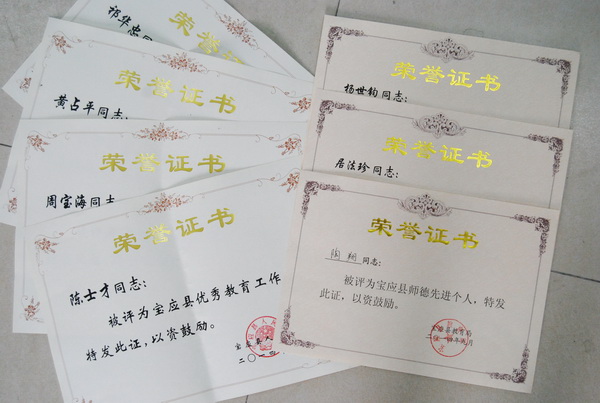 祁华忠同
荣誉证书
黄占平同志:
荣誉证书
周宝海同士
荣誉证书
陈士才同志:
被评为宝应县优秀教育工作
特发此证,以资鼓励。
宝应县人
二〇一四
荣誉证书
杨世钧同志:
荣誉证书
居法珍同志:
荣誉证书
陶翔同志:
被评为宝应县师德先进个人,特发
此证,以资鼓励。
宝应县教育局